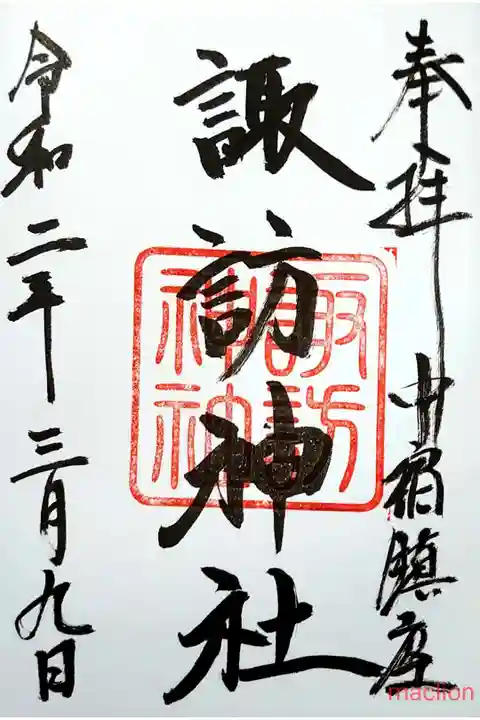 奉拝 中宿鎮座
諏訪神社
諏訪
神社
令和二年三月九日
maclion